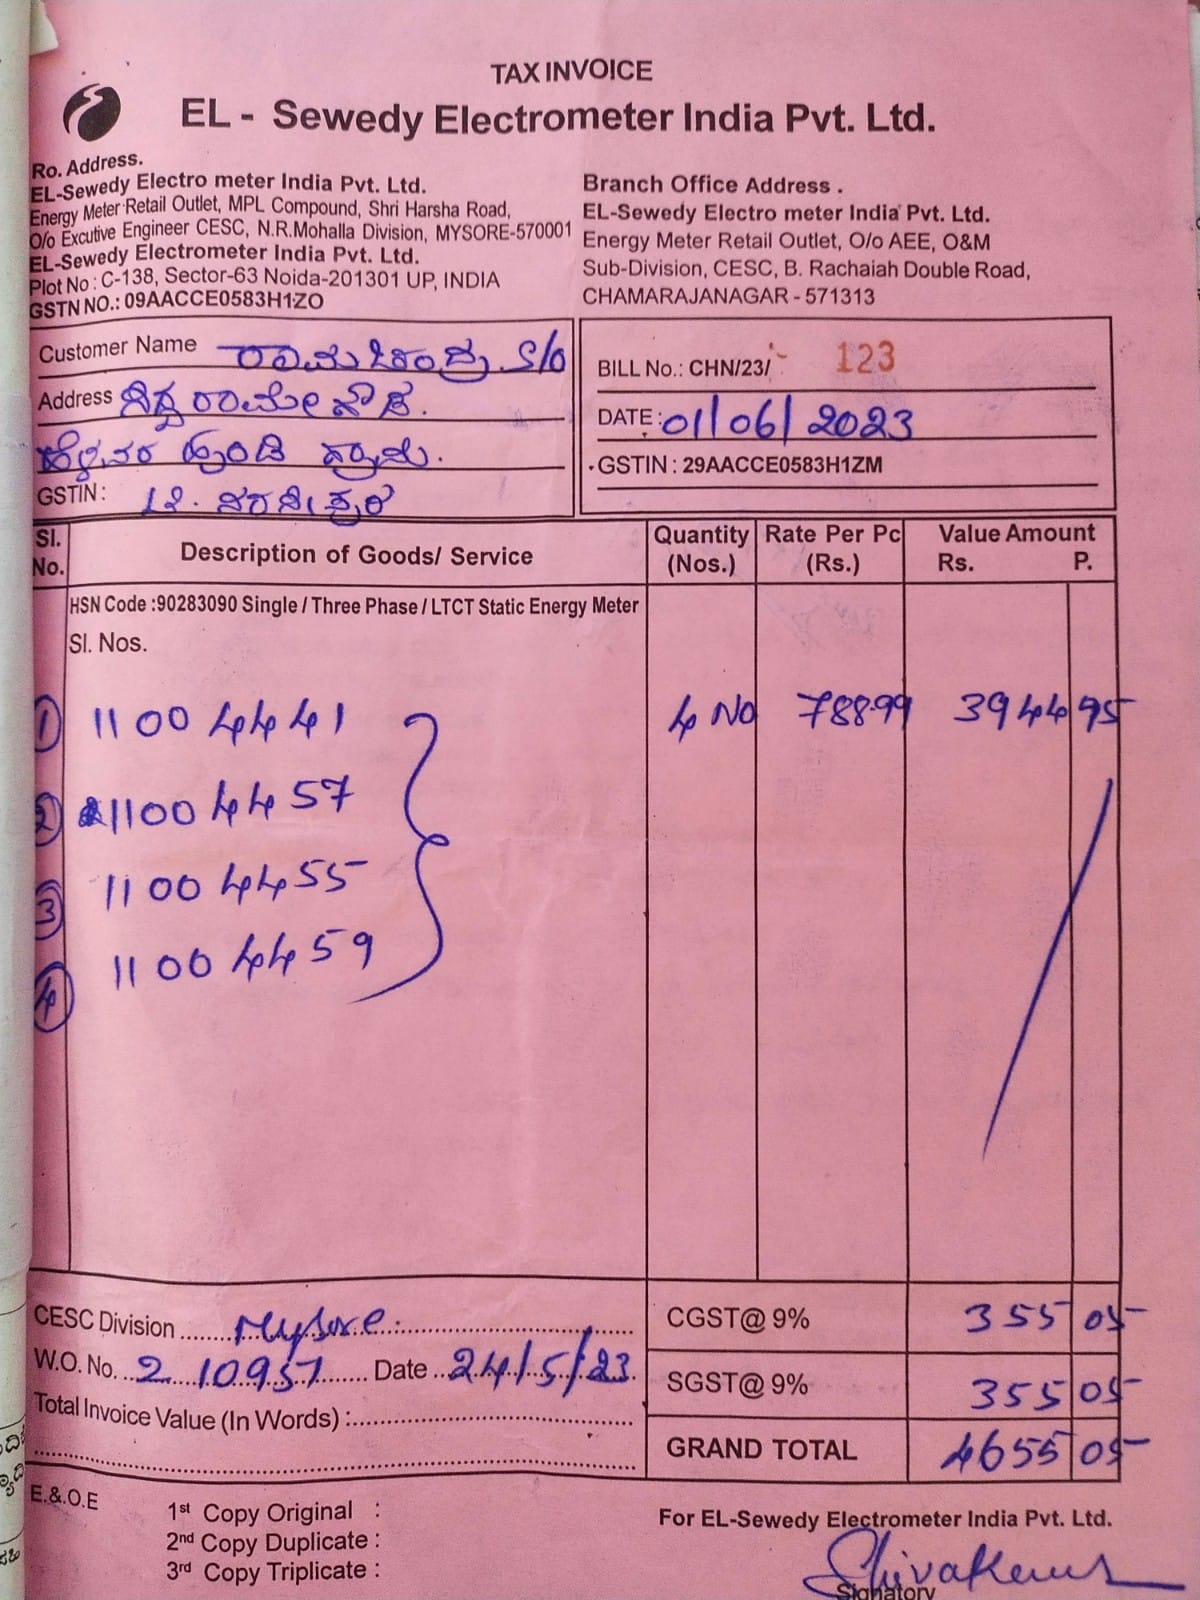 TAX INVOICE
EL - Sewedy Electrometer India Pvt. Ltd.
Ro. Address.
EL-Sewedy Electro meter India Pvt. Ltd.
Energy Meter Retail Outlet, MPL Compound, Shri Harsha Road,
O/o Excutive Engineer CESC, N.R.Mohalla Division, MYSORE-570001
EL-Sewedy Electrometer India Pvt. Ltd.
Plot No : C-138, Sector-63 Noida-201301 UP, INDIA
GSTN NO.: 09AACCE0583H1ZO
Branch Office Address .
EL-Sewedy Electro meter India Pvt. Ltd.
Energy Meter Retail Outlet, O/o AEE, O&M
Sub-Division, CESC, B. Rachaiah Double Road,
CHAMARAJANAGAR - 571313
Customer Name ರಾಮಚಂದ್ರ S/o
Address ಸಿದ್ದರಾಮೇಗೌಡ.
ಗ್ರಾಮ.
GSTIN :
BILL No.: CHN/23/ 123
DATE : 01/06/2023
GSTIN : 29AACCE0583H1ZM
Sl. No. Description of Goods/ Service Quantity (Nos.) Rate Per Pc (Rs.) Value Amount Rs. P.
HSN Code :90283090 Single / Three Phase / LTCT Static Energy Meter
Sl. Nos.
1 11004441 4 No 788.99 3944 95
2 11004457
3 11004455
4 11004459
CESC Division Mysore
W.O. No. 210957 Date 24/5/23
Total Invoice Value (In Words) :
CGST@ 9% 355 05
SGST@ 9% 355 05
GRAND TOTAL 4655 05
E.&.O.E
1st Copy Original :
2nd Copy Duplicate :
3rd Copy Triplicate :
For EL-Sewedy Electrometer India Pvt. Ltd.
Signatory